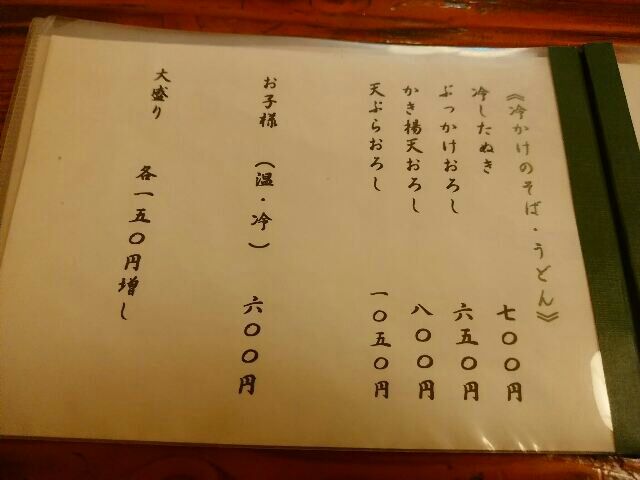 《冷かけのそば・うどん》
冷したぬき 七〇〇円
ぶっかけおろし 六五〇円
かき揚天おろし 八〇〇円
天ぷらおろし 一〇五〇円
お子様 (温・冷) 六〇〇円
大盛り 各一五〇円増し